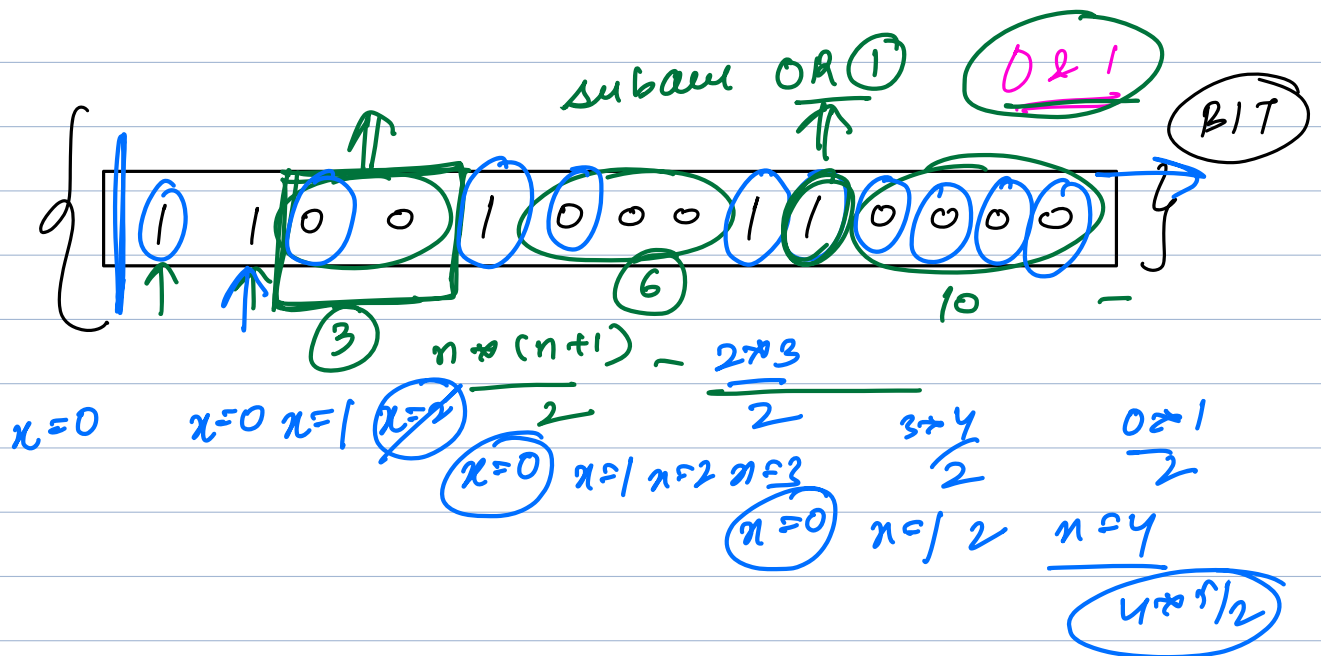 subarr OR 1 0 & 1
BIT
1 1 0 0 1 0 0 0 1 1 0 0 0 0
3 6 10 -
n * (n+1) / 2 - 2*3 / 2
x=0 x=0 x=1 x=2 3*4 / 2 0*1 / 2
x=0 x=1 x=2 x=3
x=0 x=1 2 x=4
4*5/2